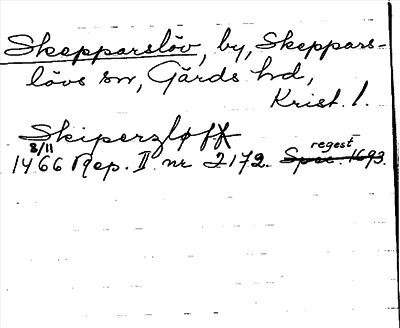 Skepparslöv, by, Skeppars-
lövs sn, Gärds hd,
Krist. l.
Skiperzløff
8/11
1466 Rep. II nr 2172. regest Spec. 1693.